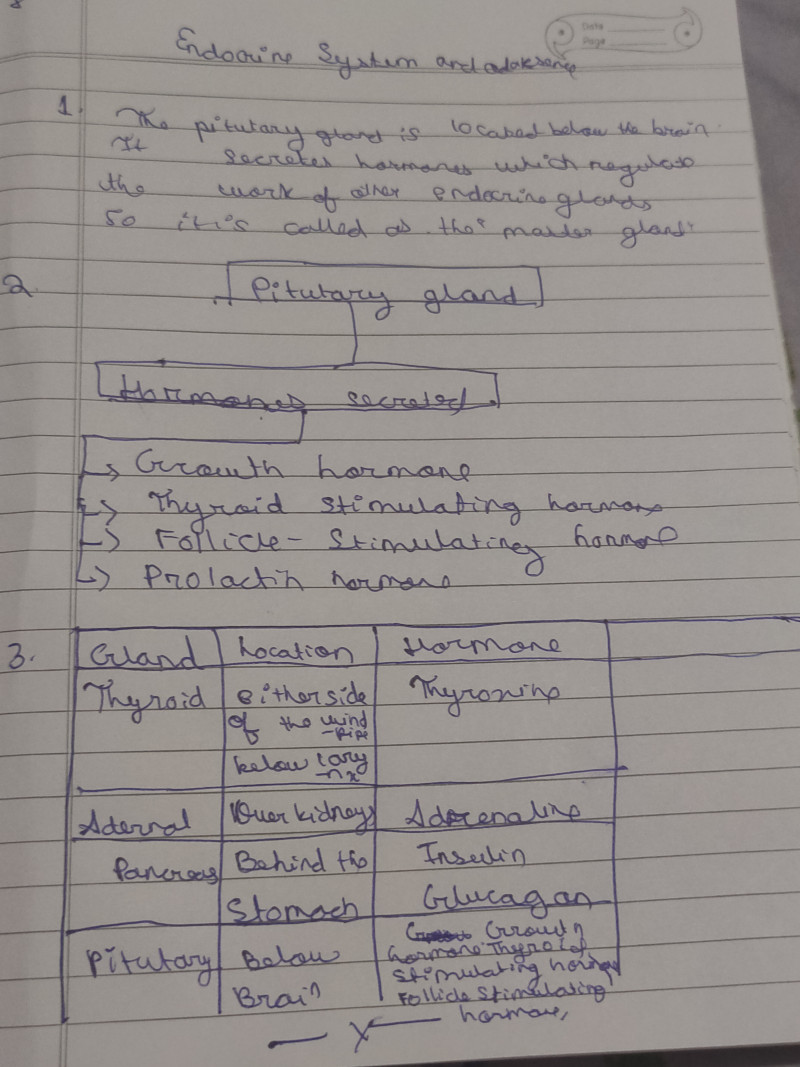 8
Date
Page
Endocrine System and adolesence
1. The pitutary gland is located below the brain.
It secretes hormones which regulate
the work of other endocrine glands
so it is called as the "master gland"
2. Pitutary gland
Hormones secreted
Growth hormone
Thyroid stimulating hormone
Follicle - Stimulating hormone
Prolactin hormone
3. Gland Location Hormone
Thyroid either side Thyroxine
of the wind
-pipe
below lary
-nx
Adernal Over kidneys Adrenaline
Pancreas Behind the Insulin
Stomach Glucagan
Growth
Pitutary Below hormone Thyroid
stimulating hormone
Brain Follicle Stimulating
hormone,
X